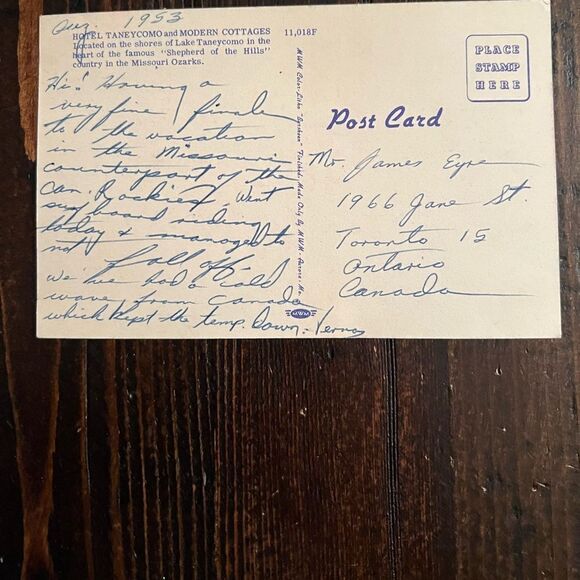 Aug. 1953
HOTEL TANEYCOMO and MODERN COTTAGES
Located on the shores of Lake Taneycomo in the
heart of the famous "Shepherd of the Hills"
country in the Missouri Ozarks.
11,018F
Hi! Having a
very fine finale
to the vacation
in the Missouri
counterpart of the
Can. Rockies. Went
surf board riding
today & managed to
not fall off.
We've had a cold
wave from Canada
which kept the temp. down. Vernon
MWM Color-Litho "Lustrcote" Finished. Made Only by MWM, Aurora, Mo.
MWM
Post Card
PLACE
STAMP
HERE
Mr. James Eyre
1966 Jane St.
Toronto 15
Ontario
Canada